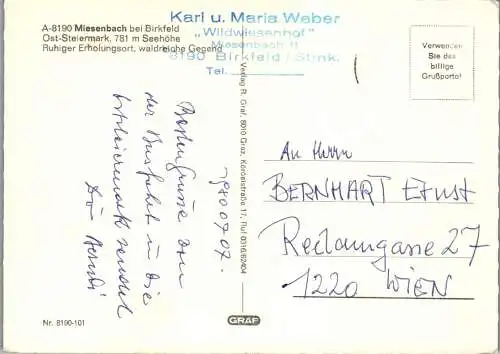 A-8190 Miesenbach bei Birkfeld
Ost-Steiermark, 781 m Seehöhe
Ruhiger Erholungsort, waldreiche Gegend
Karl u. Maria Weber
„Wildwiesenhof"
Miesenbach 11
8190 Birkfeld / Stmk.
Tel.
Verwenden
Sie das
billige
Grußporto!
Verlag R. Graf, 8010 Graz, Körösistraße 17, Tel. 0316/62404
1980 07 07.
Beste Grüße von
der Busfahrt in die
Oststeiermark sendet
An Herrn
BERNHART Ernst
Reclamgasse 27
1220 WIEN
Nr. 8190-101
GRAF